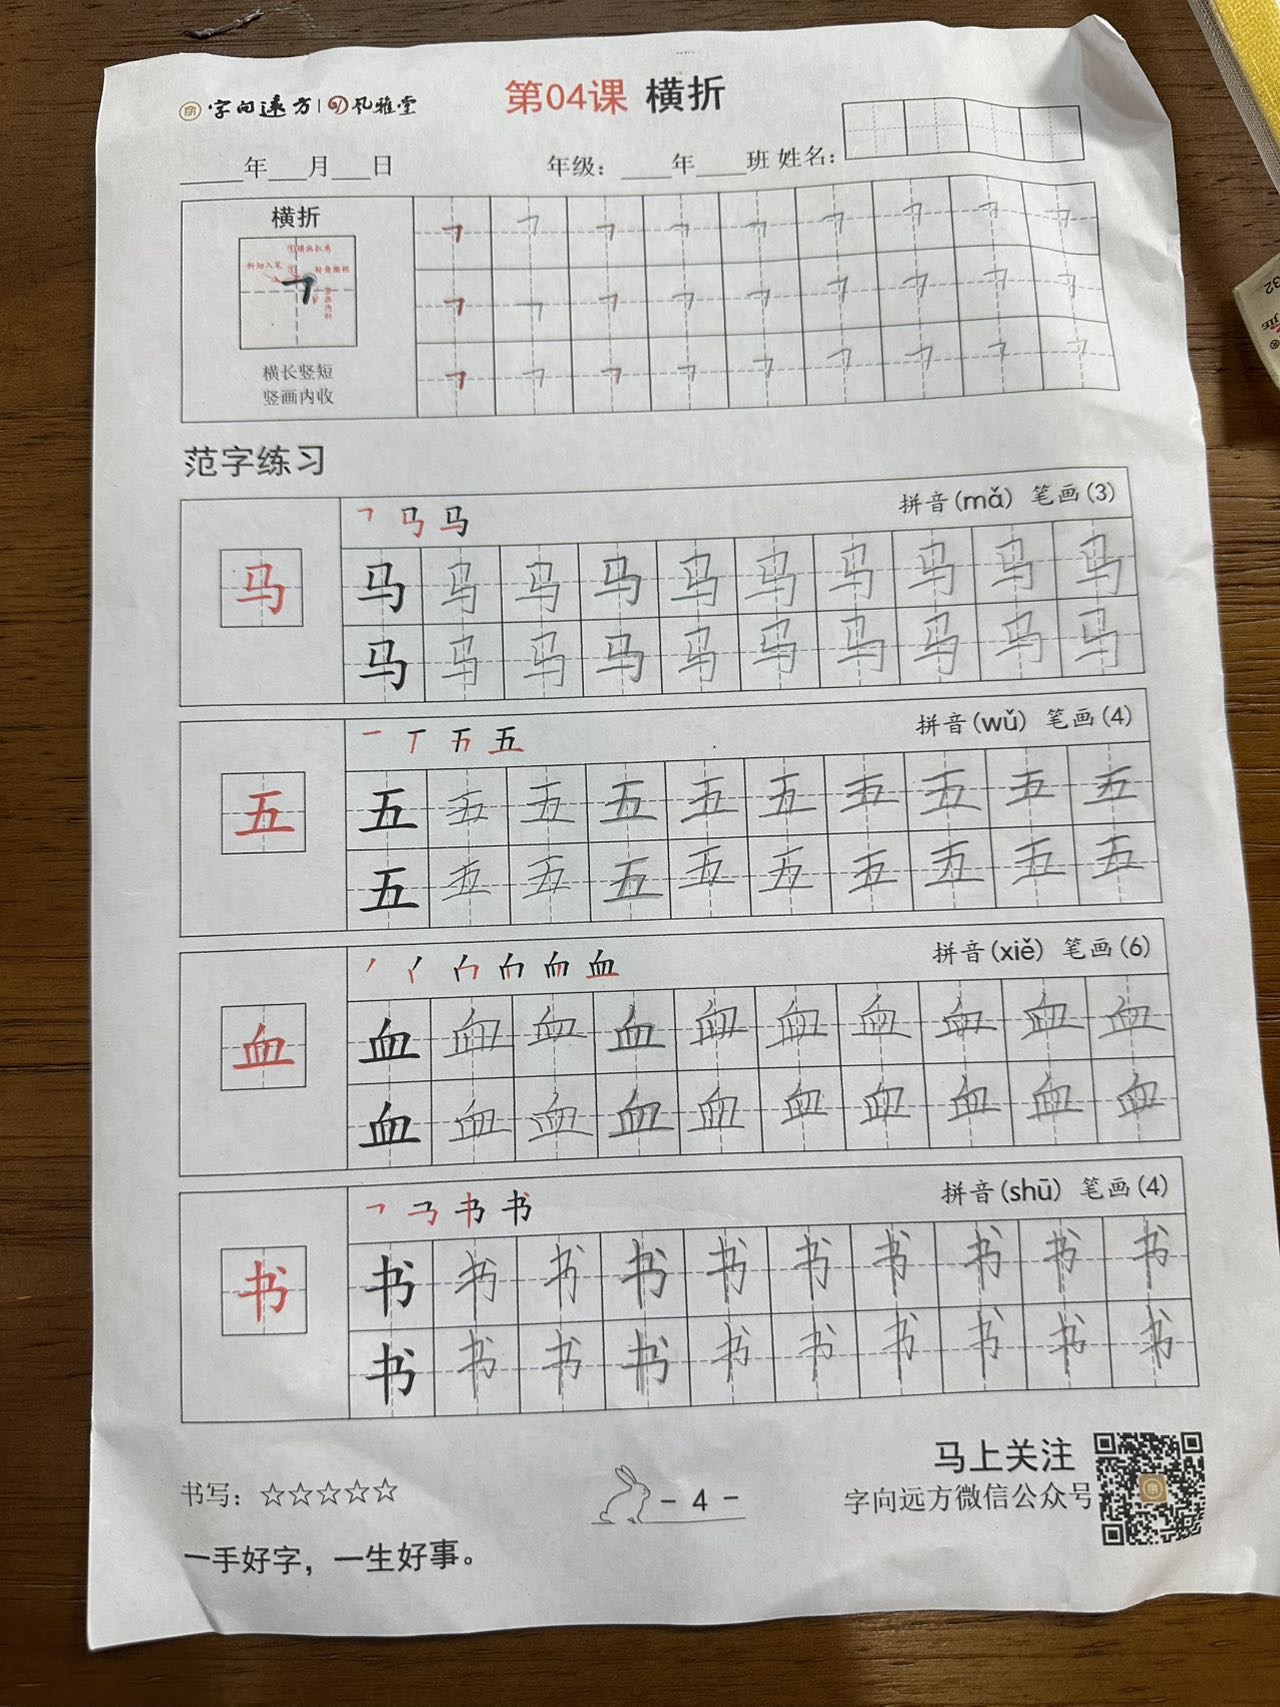 字向远方 | 风雅堂
第04课 横折
____年___月___日 年级：____年____班 姓名：
横折
①横画扛角
斜切入笔 ① 转角撇捺
横长竖短
竖画内收
𠃍 𠃍 𠃍 𠃍 𠃍 𠃍 𠃍 𠃍 𠃍
𠃍 𠃍 𠃍 𠃍 𠃍 𠃍 𠃍 𠃍 𠃍
𠃍 𠃍 𠃍 𠃍 𠃍 𠃍 𠃍 𠃍 𠃍
范字练习
马 拼音(mǎ) 笔画(3)
马
马 马 马 马 马 马 马 马 马 马
马 马 马 马 马 马 马 马 马 马
五 拼音(wǔ) 笔画(4)
五
五 五 五 五 五 五 五 五 五 五
五 五 五 五 五 五 五 五 五 五
血 拼音(xiě) 笔画(6)
血
血 血 血 血 血 血 血 血 血 血
血 血 血 血 血 血 血 血 血 血
书 拼音(shū) 笔画(4)
书
书 书 书 书 书 书 书 书 书 书
书 书 书 书 书 书 书 书 书 书
马上关注
书写：☆☆☆☆☆
- 4 -
字向远方微信公众号
一手好字，一生好事。